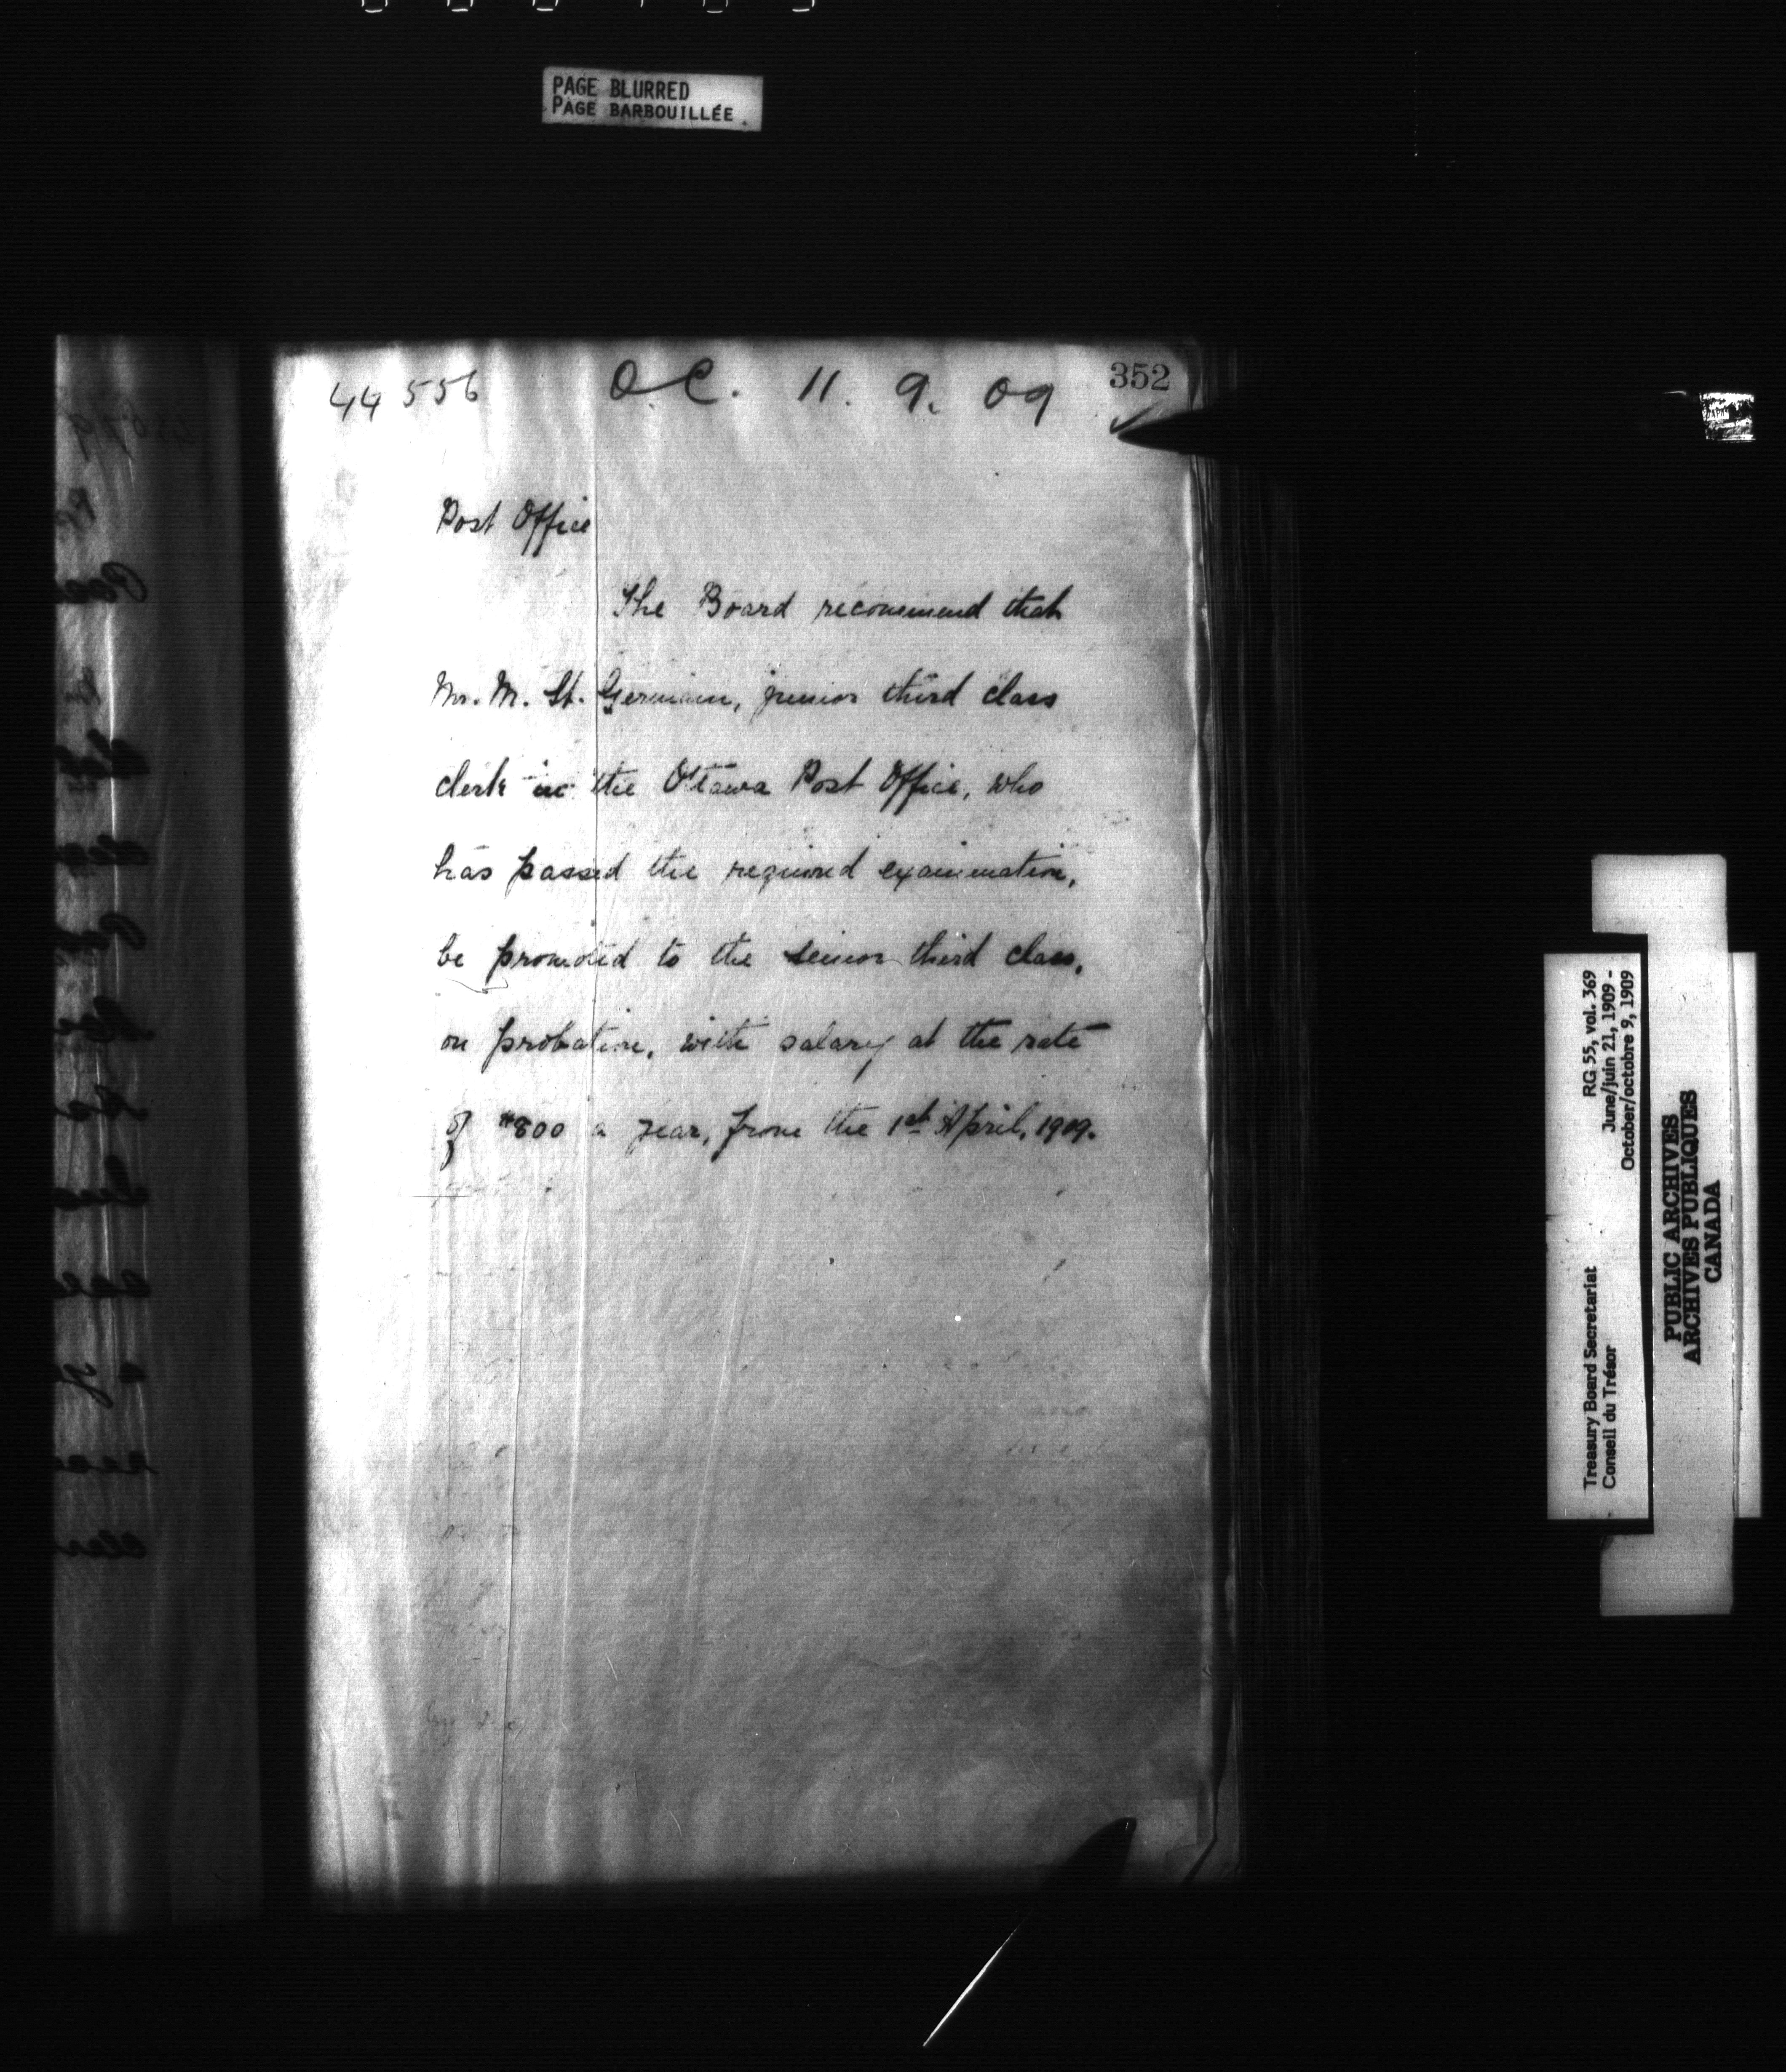 PAGE BLURRED
PAGE BARBOUILLÉE
44556
O.C. 11. 9. 09
352
Post Office
The Board recommend that
Mr. M. St. Germain, junior third class
clerk in the Ottawa Post Office, who
has passed the required examination,
be promoted to the senior third class,
on probation, with salary at the rate
of $800 a year, from the 1st April, 1909.
RG 55, vol. 369
June/juin 21, 1909 -
October/octobre 9, 1909
Treasury Board Secretariat
Conseil du Trésor
PUBLIC ARCHIVES
ARCHIVES PUBLIQUES
CANADA